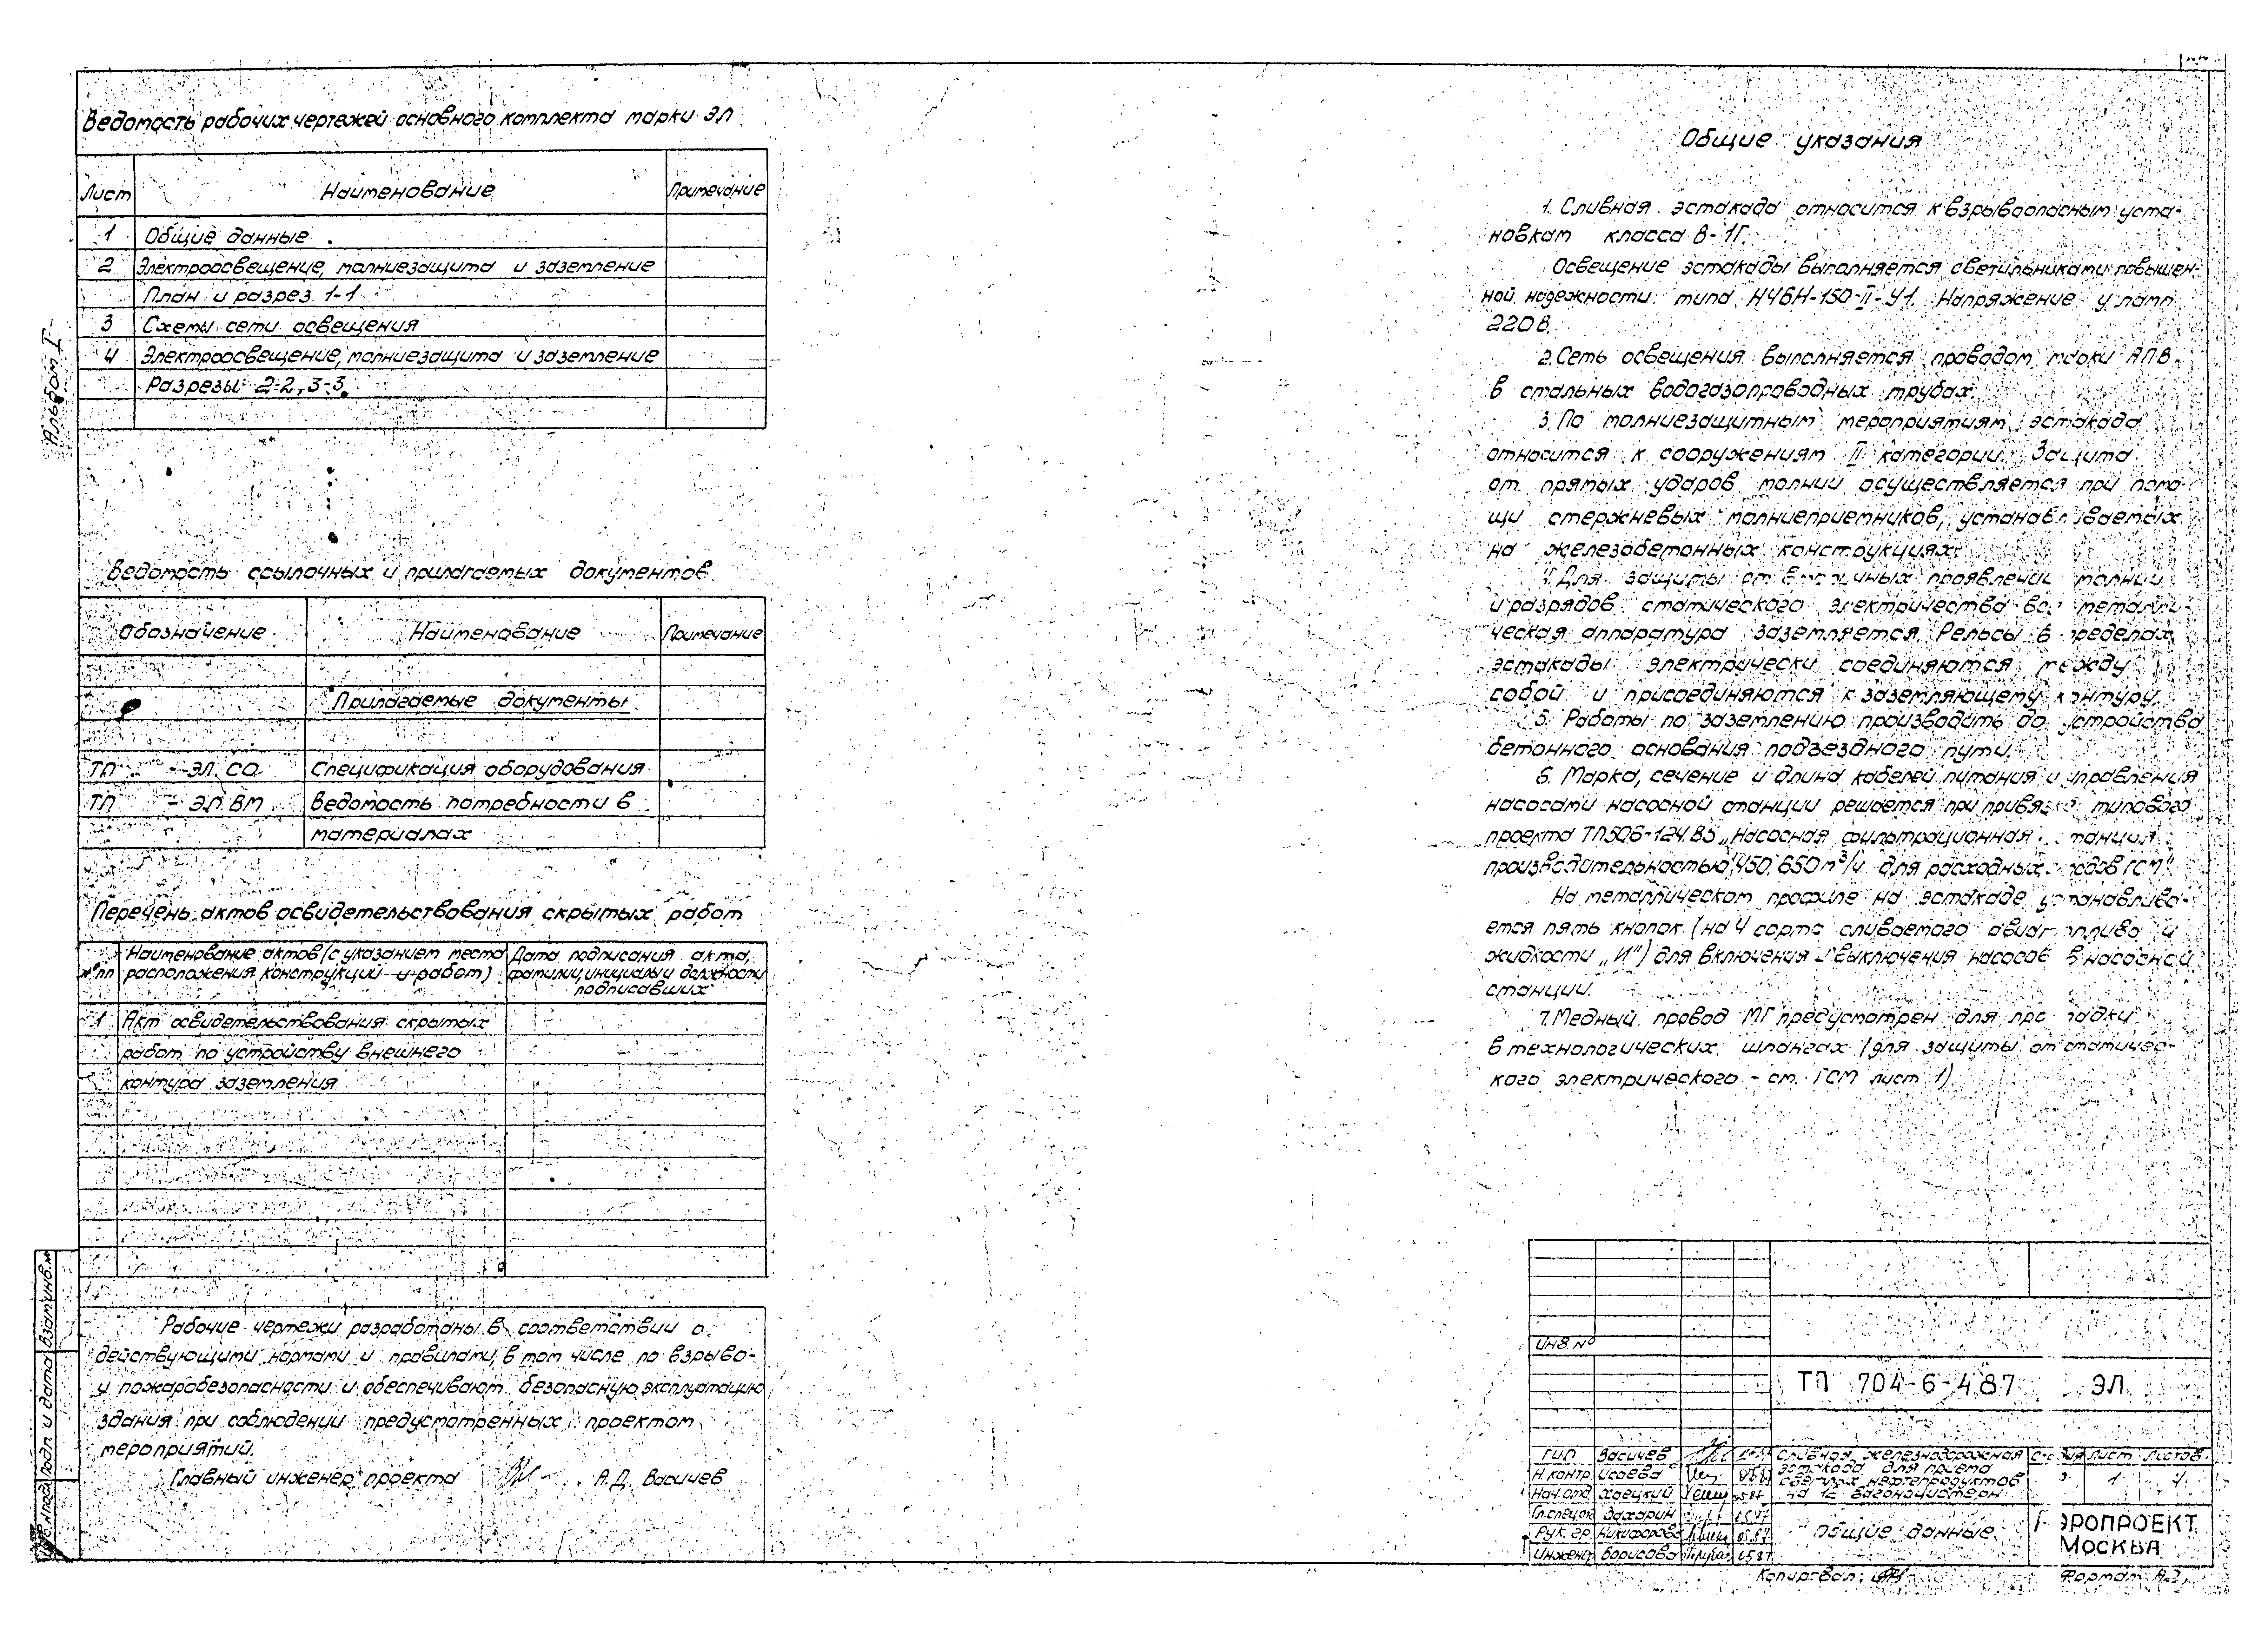 Альбом I
Ведомость рабочих чертежей основного комплекта марки ЭЛ
Лист Наименование Примечание
1 Общие данные.
2 Электроосвещение, молниезащита и заземление
План и разрез 1-1
3 Схемы сети освещения
4 Электроосвещение, молниезащита и заземление
Разрезы 2-2, 3-3.
Ведомость ссылочных и прилагаемых документов
Обозначение Наименование Примечание
Прилагаемые документы
ТП - ЭЛ.СО Спецификация оборудования
ТП - ЭЛ.ВМ Ведомость потребности в
материалах
Перечень актов освидетельствования скрытых работ
№ пп Наименование актов (с указанием места Дата подписания акта,
расположения конструкций и работ) фамилии, инициалы и должности
подписавших
1 Акт освидетельствования скрытых
работ по устройству внешнего
контура заземления
Рабочие чертежи разработаны в соответствии с
действующими нормами и правилами, в том числе по взрыво-
и пожаробезопасности и обеспечивают безопасную эксплуатацию
здания при соблюдении предусмотренных проектом
мероприятий.
Главный инженер проекта А.Д. Васичев
Общие указания
1. Сливная эстакада относится к взрывоопасным уста-
новкам класса В-1Г.
Освещение эстакады выполняется светильниками повышен-
ной надежности типа Н4БН-150-II-У1. Напряжение у ламп
220В.
2. Сеть освещения выполняется проводом марки АПВ
в стальных водогазопроводных трубах.
3. По молниезащитным мероприятиям эстакада
относится к сооружениям II категории. Защита
от прямых ударов молнии осуществляется при помо-
щи стержневых молниеприемников, устанавливаемых
на железобетонных конструкциях.
4. Для защиты от вторичных проявлений молнии
и разрядов статического электричества вся металли-
ческая аппаратура заземляется. Рельсы в пределах
эстакады электрически соединяются между
собой и присоединяются к заземляющему контуру.
5. Работы по заземлению производить до устройства
бетонного основания подъездного пути.
6. Марка, сечение и длина кабелей питания и управления
насосами насосной станции решается при привязке типового
проекта ТП506-124.85 „Насосная фильтрационная станция
производительностью 450, 650 м³/ч для расходных складов ГСМ"
На металлическом профиле на эстакаде устанавлива-
ется пять кнопок (на 4 сорта сливаемого авиатоплива и
жидкости „И") для включения и выключения насосов в насосной
станции.
7. Медный провод МГ предусмотрен для прокладки
в технологических шлангах (для защиты от статичес-
кого электрического - см. ГСМ лист 1)
Инв. №
ТП 704-6-4.87 ЭЛ
ГИП Васичев
Н.контр. Исаева
Нач.отд. Хаецкий 05.87
Гл.спец.отд Захарин 05.87
Рук. гр. Никифорова 05.87
Инженер Борисова 05.87
Сливная железнодорожная
эстакада для приема
светлых нефтепродуктов
на 12 вагоноцистерн
Стадия Лист Листов
Р 1 4
Общие данные
АЭРОПРОЕКТ
МОСКВА
Копировал: Формат А3
Взам.инв.№
Подп. и дата
Инв.№ подл.